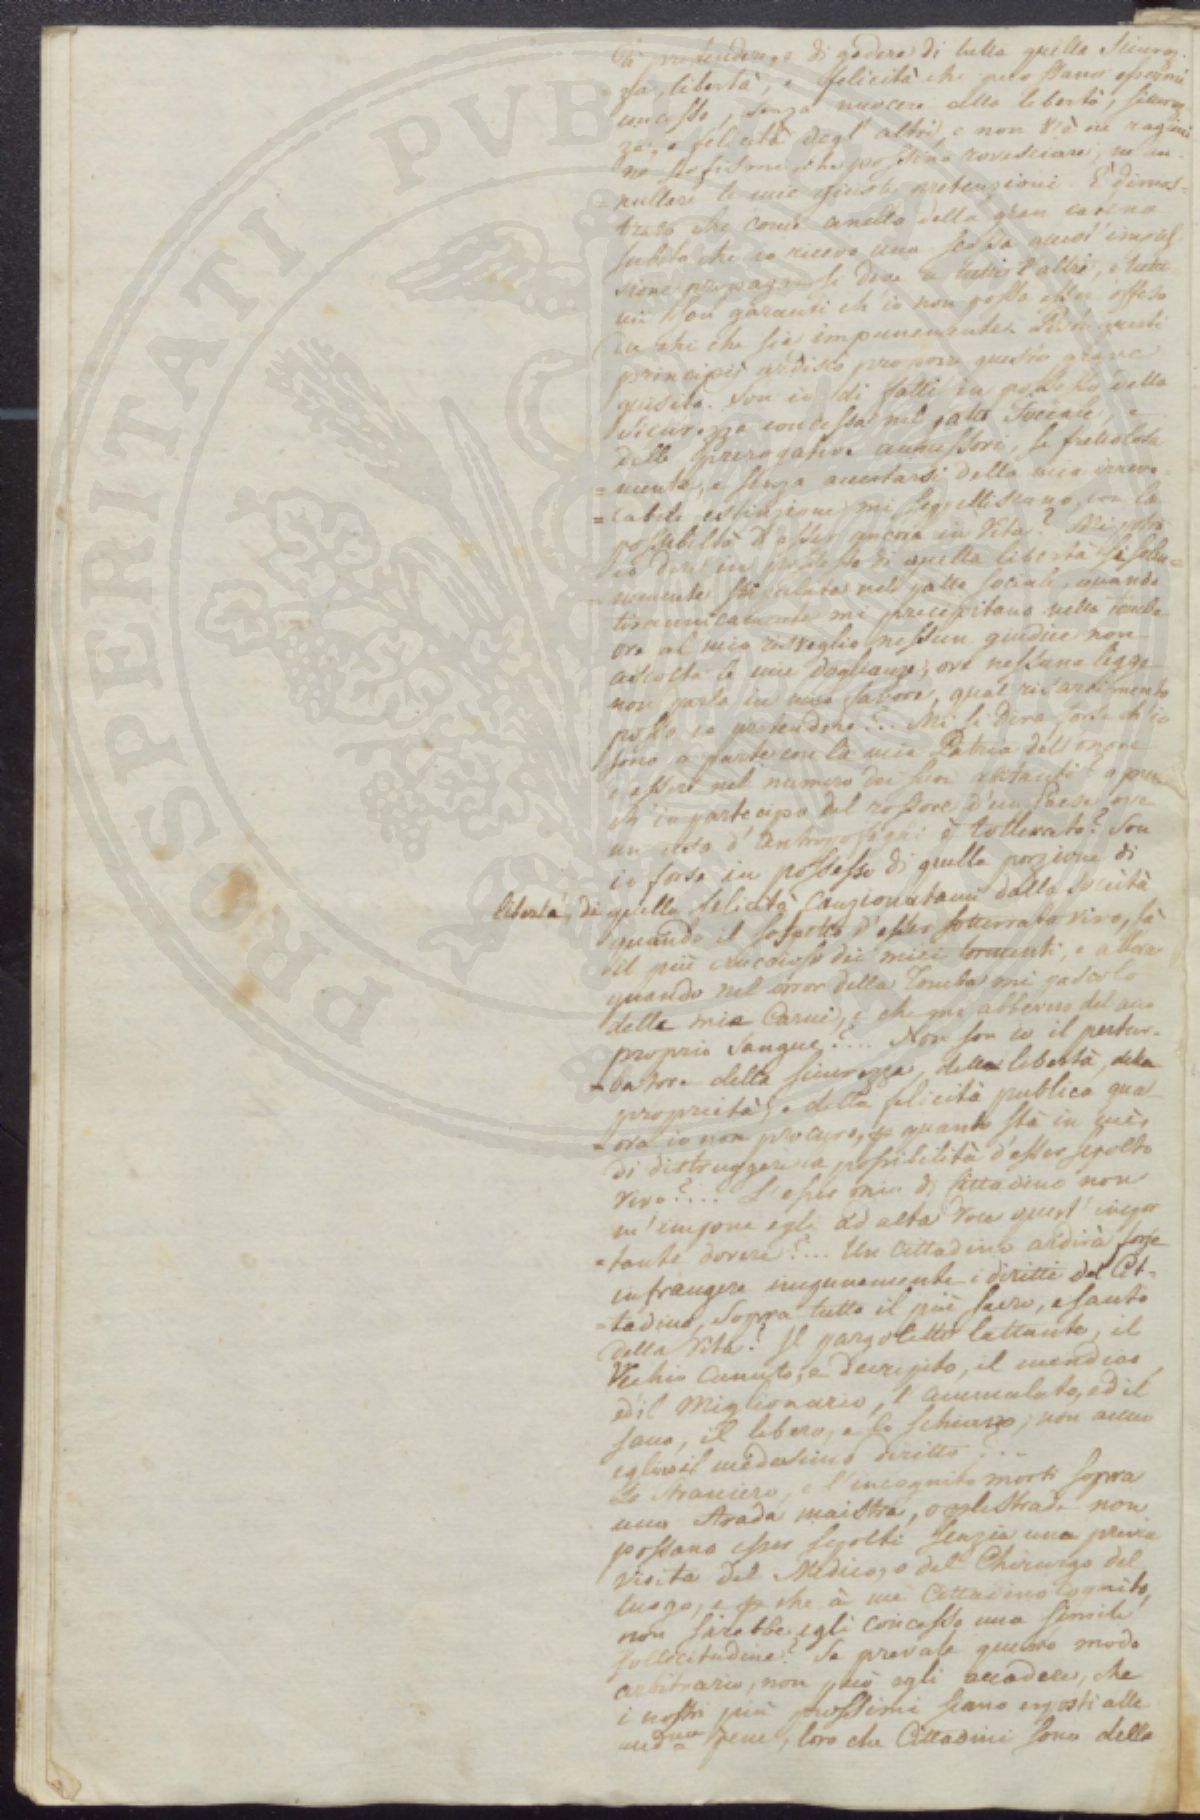 PROSPERITATI PUBLICAE
à pretendere, e di godere di tutta quella sicurez-
za, libertà, e felicità che possano essermi
concesse, senza nuocere alla libertà, sicurez
za, e felicità degl' altri, e non v'è ne ragio
ne, sofismi che possino rovesciare, ne an-
nullare le mie giuste pretenzioni. È dimos-
trato che come anello della gran catena
subito che io ricevo una scossa quest' impul-
sione propagarsi deve a tutti l'altri, e tutti
garanti ch' io non possa esser offeso
da chi che sia impunemente. questi
principii ardisco proporre questo grave
quisito. Son io di fatti in possesso della
sicurezza concessa nel patto Sociale, e
delle prerogative annessovi, se frettolosa
=mente, e senza accertarsi della mia irrevo-
=cabile estinzione mi seppelliscano, con la
possibiltà d'esser ancora in vita? Mi potrò
io dire in possesso di quella libertà si sole-
nemente stipulata nel patto sociale, quando
tirannicamente mi precepitano nella tomba
ove al mio risveglio nessun giudice non
ascolta le mie doglianze, ove nessuna legge
non parla in mio favore, qual risarcimento
posso io pretendere?... Mi si dirà forse ch'io
sono a parte con la mia Patria dell'onore
d'essere nel numero dei suoi abitanti? o pure
ch' io partecipo del rossore d'un Paese ove
un atto d'antropofaghi è tollerato? Son
io forse in possesso di quella porzione di
libertà, di quella felicità Cauzionatami dalla Società
quando il sospetto d'esser sotterrato vivo, fà
il più crucioso dei miei tormenti, e allora
quando nel orror della Tomba mi pascolo
delle mie Carni, e che mi abbevro del mio
proprio sangue?.... Non son io il pertur-
=batore della sicurezza, della libertà, della
proprietà, e della felicità publica qua-
=ora io non procuro, p quanto stà in mè,
di distruggere la possibilità d'esser sepolto
vivo?.... L'esser mio di Cittadino non
m'impone egli ad alta voce quest' impor
=tante dovere?... Un Cittadino ardirà forse
infrangere impunemente i diritti del Cit-
=tadino, sopra tutto il più sacro, e santo
della Vita? Il pargoletto lattante, il
Vechio Canuto, e decrepito, il mendico
ed il Miglionario, l'ammalato, ed il
sano, il libero, e lo schiavo, non anno
eglino il medesimo diritto?...
Lo straniero, e l'incognito morti sopra
una strada maistra, o p le strade non
possano esser sepolti senzia una previa
visita del Medico, o del Chirurgo del
luogo, e p che à me Cittadino Cognito,
non sarebbe egli concessa una simile
sollecitudine? Se prevale questo modo
arbitrario, non può egli accadere, che
i nostri più prossimi siano esposti alle
pene, loro che Cittadini sono della